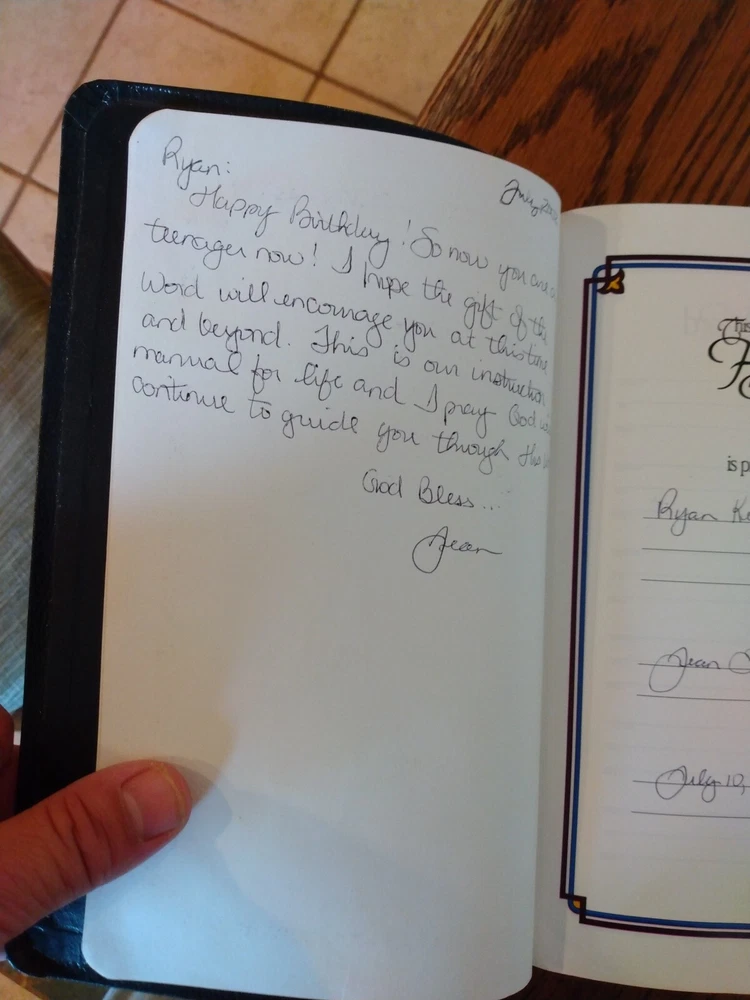 Ryan:
July 20
Happy Birthday! So now you are a
teenager now! I hope the gift of the
Word will encourage you at this time
and beyond. This is our instruction
manual for life and I pray God
continue to guide you through this
God Bless...
Jean
This
H
is p
Ryan Ke
Jean
July 10,